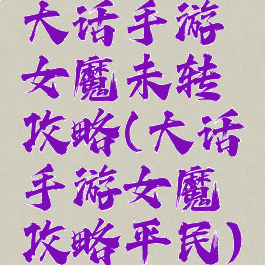 大话手游
女魔未转
攻略(大话
手游女魔
攻略平民)